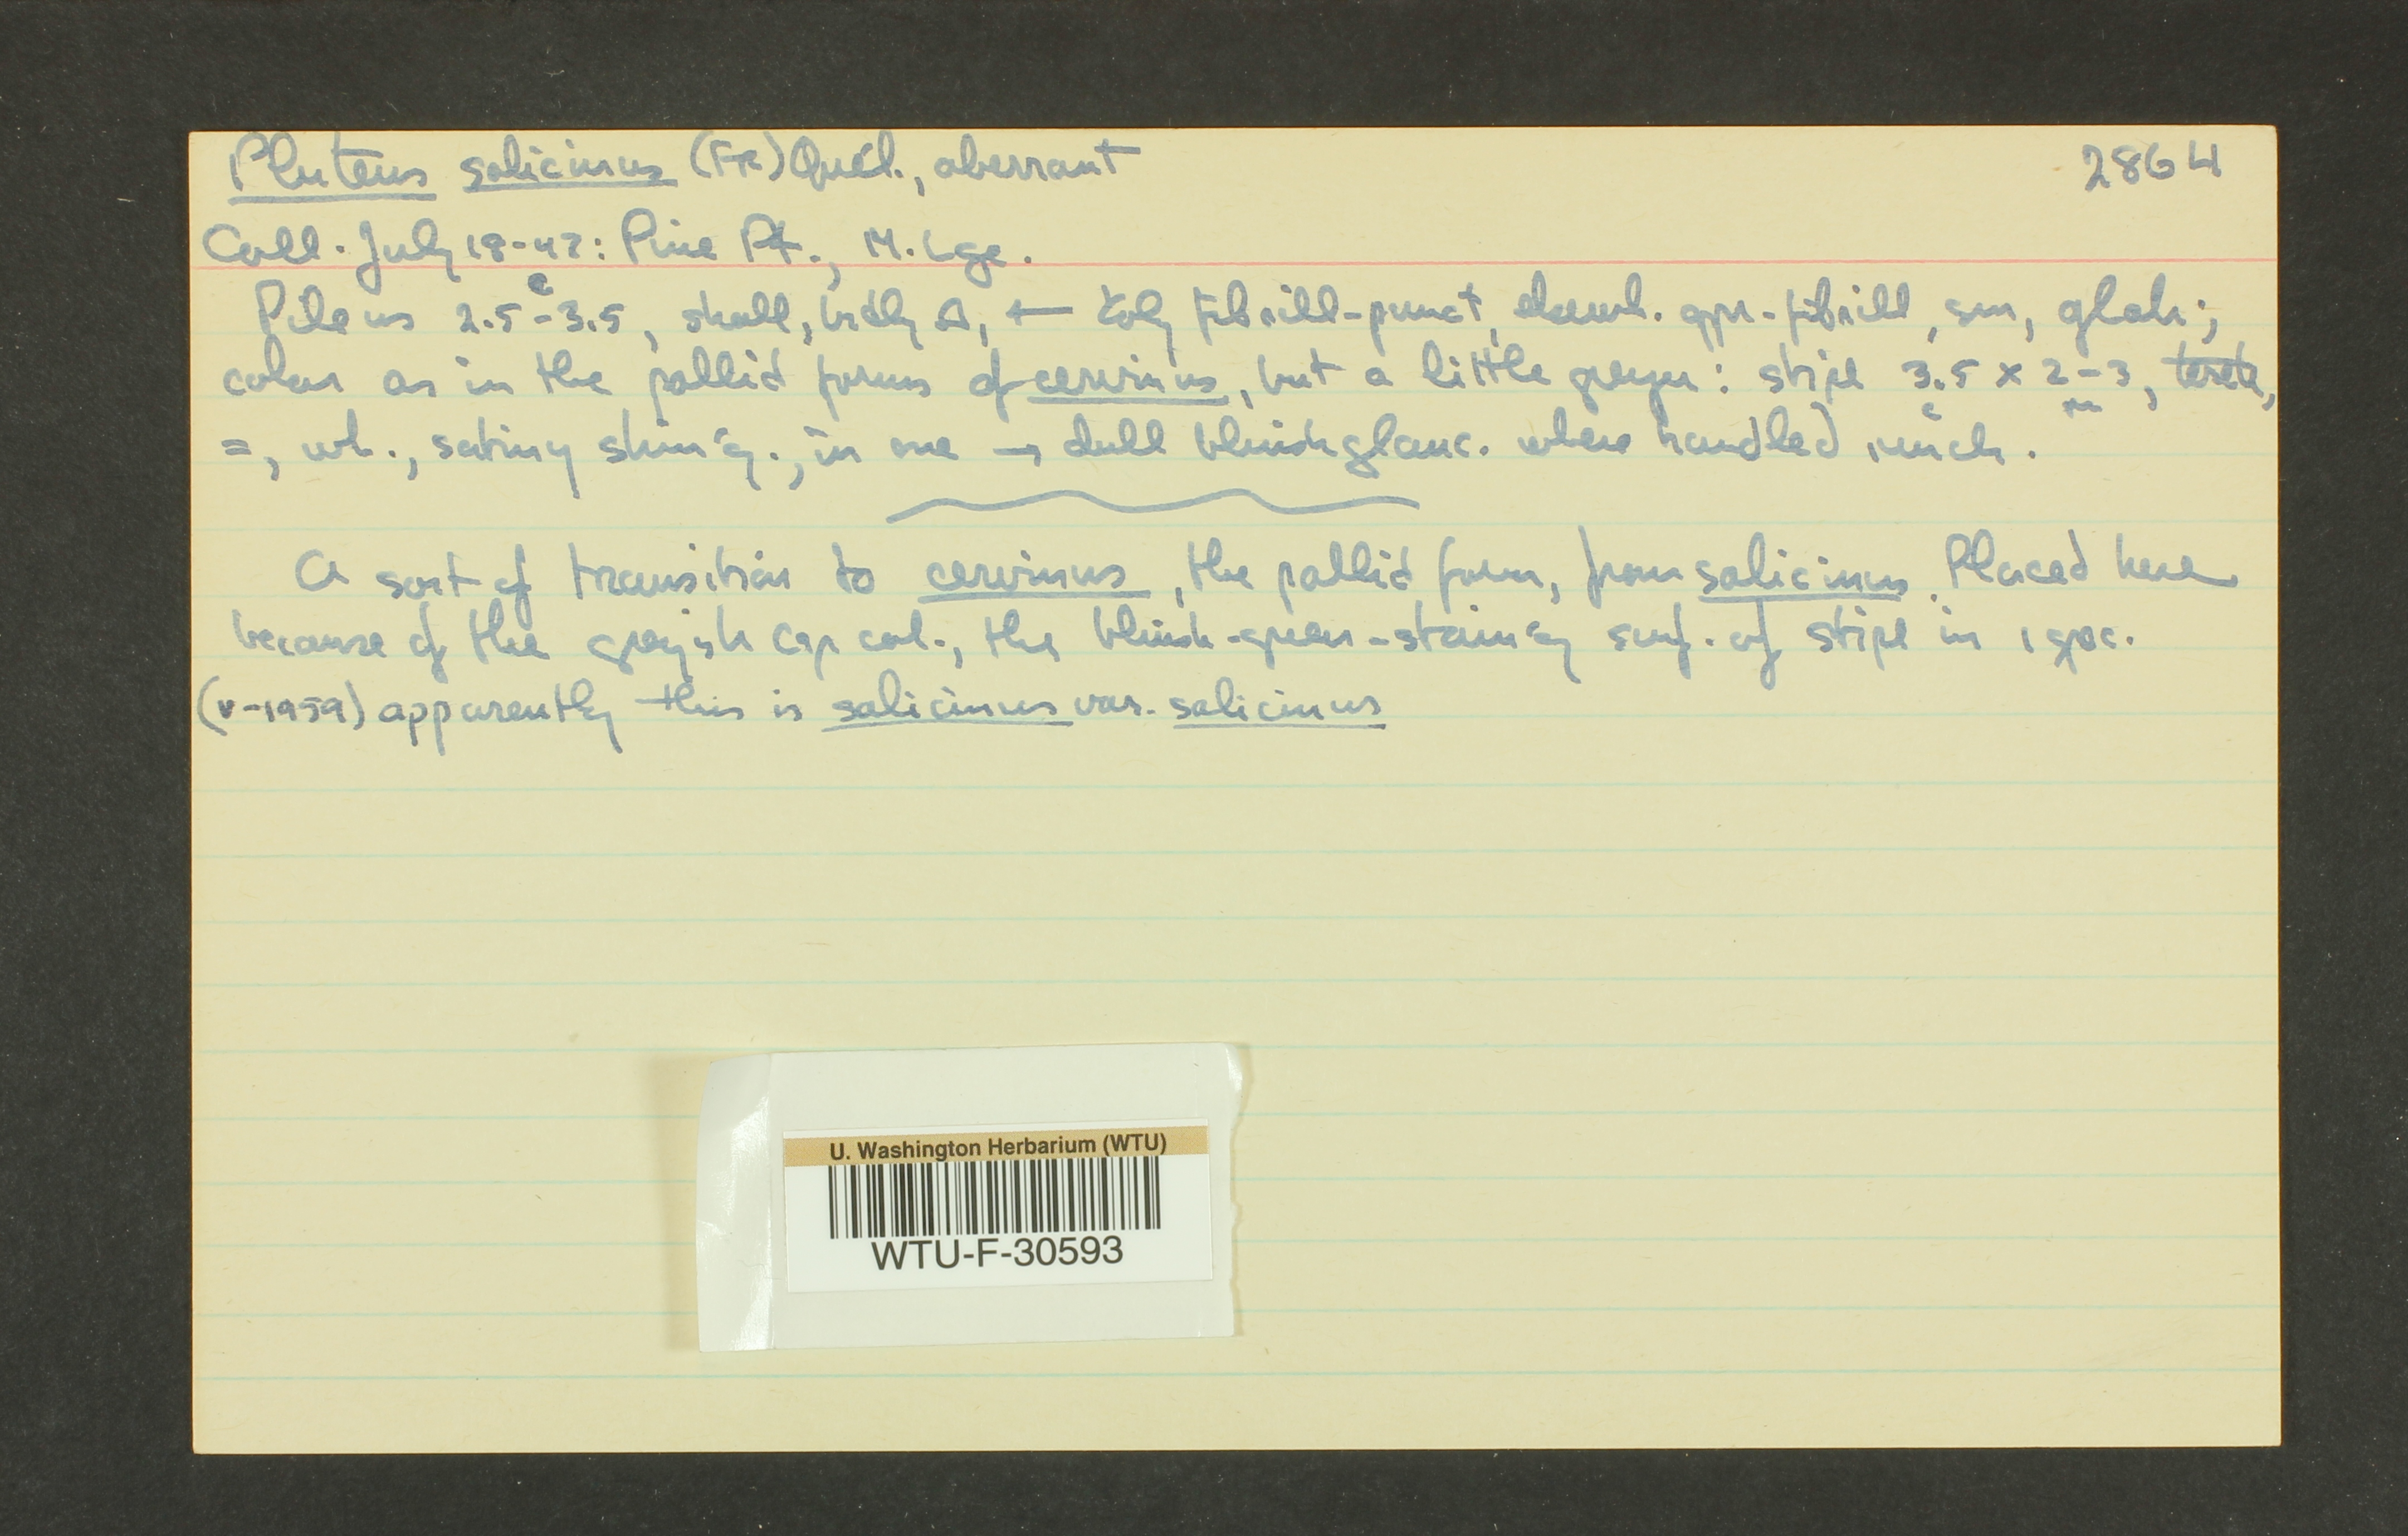 Pluteus salicinus (Fr) Quél., aberrant 2864
Coll. July 18-42: Pine Pt., M. Lge.
Pileus 2.5-3.5, shall, brdly fibrill-punct, elsewh. fibrill, sm, glab;
color as in the pallid forms of cervinus, but a little greyer: stipe 3.5 x 2-3, terete,
=, wh., satiny shin'g., in one → dull bluish glauc. where handled much.
A sort of transition to cervinus, the pallid form, from salicinus. Placed here
because of the greyish cap col., the bluish-green-stain'g surf. of stipe in 1 spec.
(v-1959) apparently this is salicinus var. salicinus
U. Washington Herbarium (WTU)
WTU-F-30593